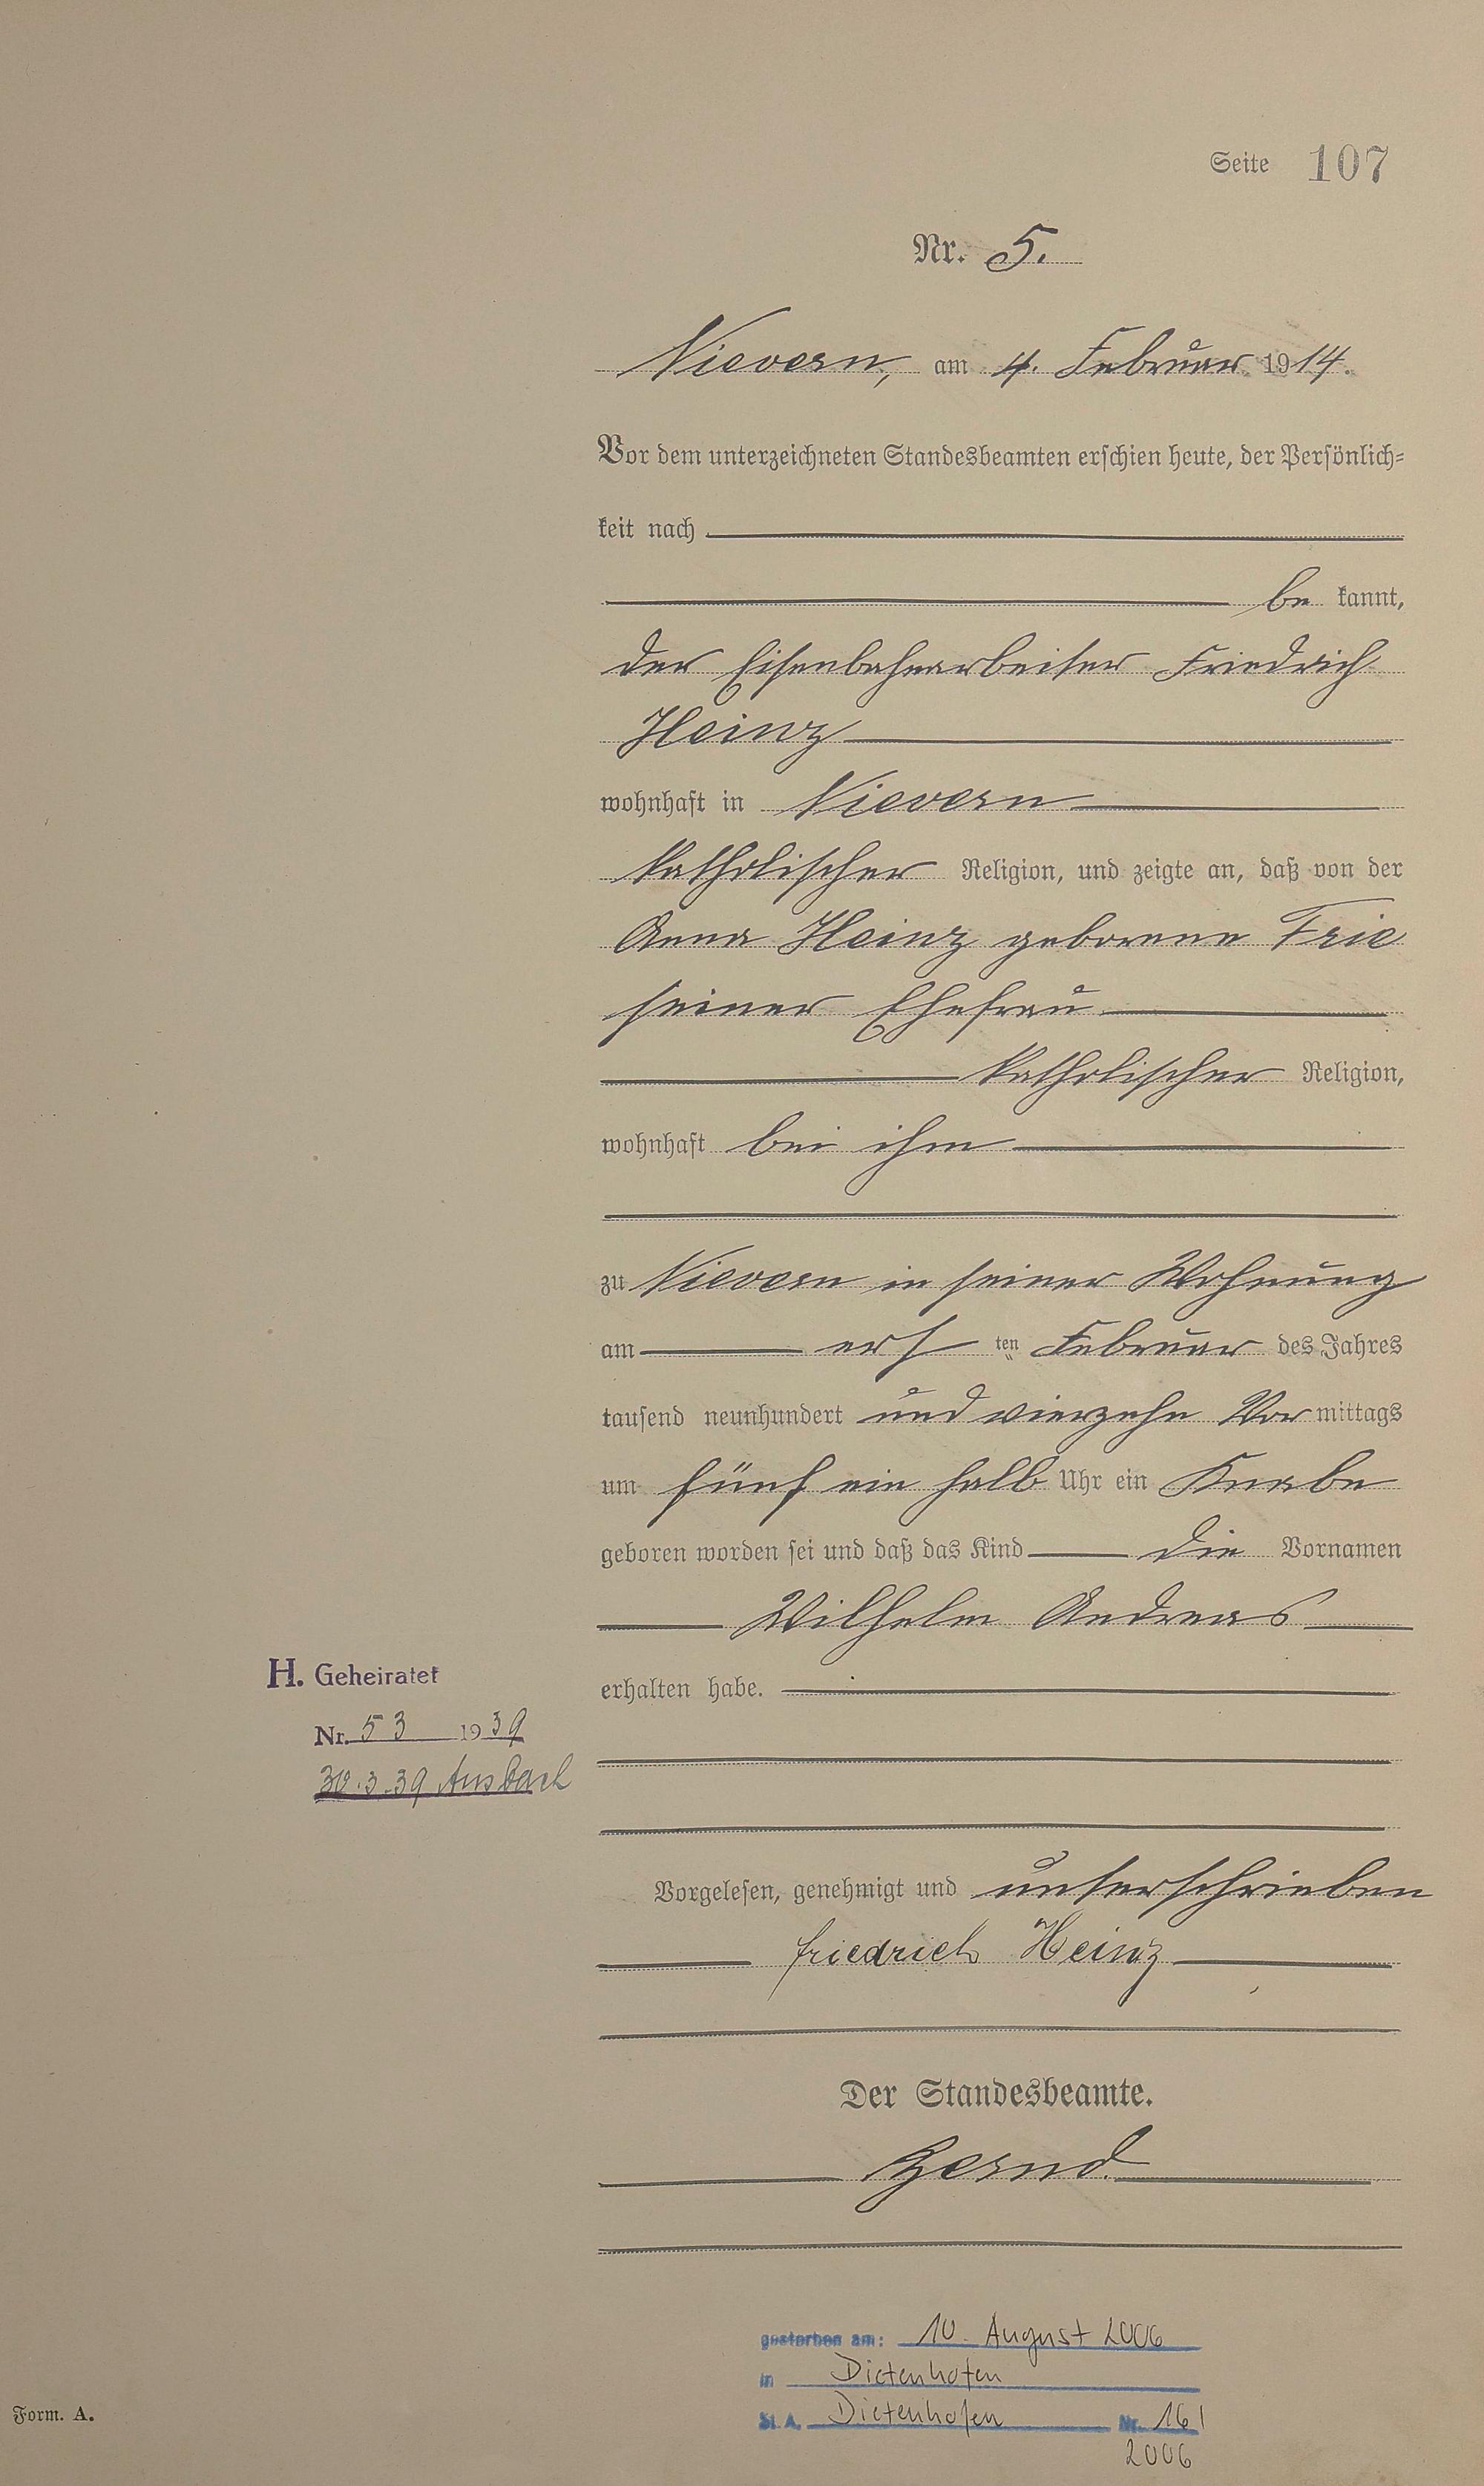 Seite 107
Nr. 5.
Nievern, am 4. Februar 1914.
Vor dem unterzeichneten Standesbeamten erschien heute, der Persönlich-
keit nach
be kannt,
der Eisenbahnarbeiter Friedrich
Heinz
wohnhaft in Nievern
katholischer Religion, und zeigte an, daß von der
Anna Heinz geborene Frie
seiner Ehefrau
katholischer Religion,
wohnhaft bei ihm
zu Nievern in seiner Wohnung
am ersten Februar des Jahres
tausend neunhundert und vierzehn Vormittags
um fünf ein halb Uhr ein Knabe
geboren worden sei und daß das Kind die Vornamen
Wilhelm Andreas
erhalten habe.
H. Geheiratet
Nr. 53 1939
30.3.39 Ansbach
Vorgelesen, genehmigt und unterschrieben
Friedrich Heinz
Der Standesbeamte.
gestorben am: 10. August 2006
in Dietenhofen
St. A. Dietenhofen Nr. 16/
2006
Form. A.